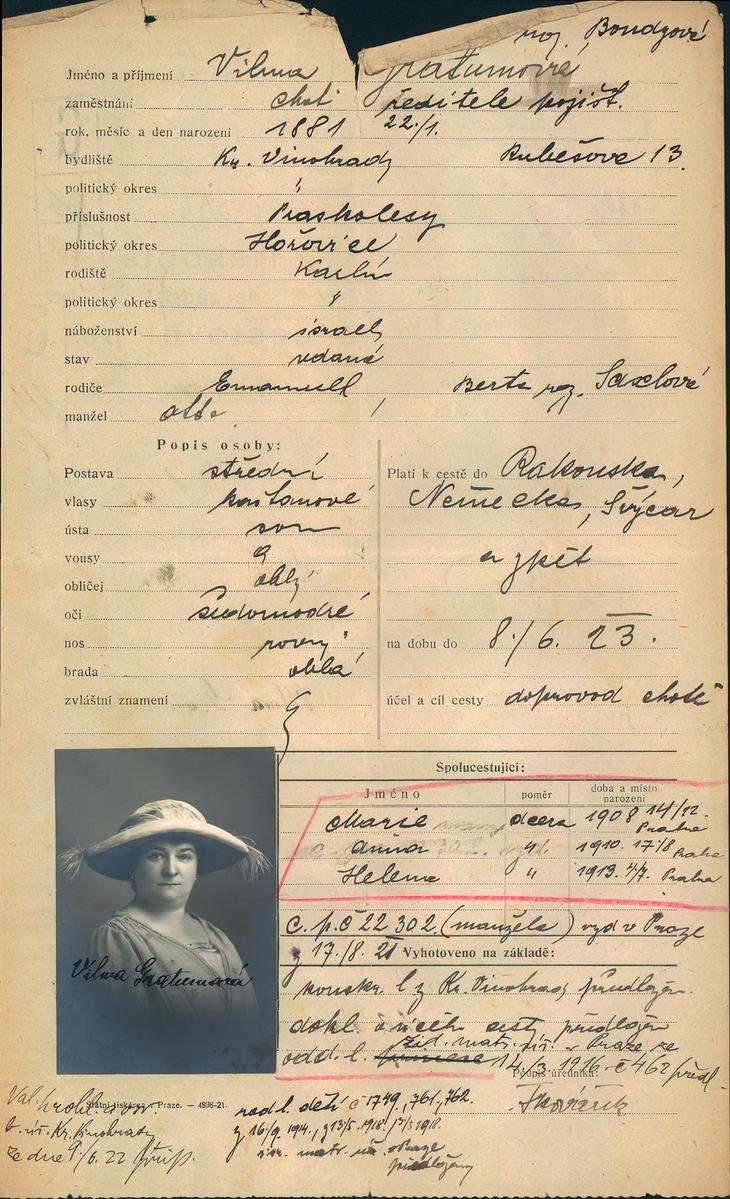 roz. Bondyové
Jméno a příjmení Vilma Gratumová
zaměstnání choť ředitele pojišť.
rok, měsíc a den narození 1881 22./1.
bydliště Kr. Vinohrady Rubešova 13
politický okres "
příslušnost Praskolesy
politický okres Hořovice
rodiště Karlín
politický okres "
náboženství israel,
stav vdaná
rodiče Emanuell Berta roz. Saxlová
manžel Otto
Popis osoby:
Postava střední
vlasy kaštanové
ústa soum
vousy
obličej oblý
oči šedomodré
nos rovný
brada oblá
zvláštní znamení
Platí k cestě do Rakouska,
Německa, Švýcar
a zpět
na dobu do 8./6. 23.
účel a cíl cesty doprovod chotě
Spolucestující:
Jméno poměr doba a místo narození
Marie dcera 1908 14/12. Praha
Anna " 1910. 17/8 Praha
Helena " 1913. 4/7. Praha
c. p. č 22 302 (manžela) vyd v Praze
z 17./8. 21 Vyhotoveno na základě:
konskr. l z Kr. Vinohrad předložen.
dokl. o cíli cesty předložen
žid. matr. v Praze ze
odd. l. 14./3. 1916 č 462 předl.
Podpis úředníka:
Vilma Gratumová
Státní tiskárna v Praze. — 4898-21.
rod l. dětí č 1749, 761, 762.
z 16/9. 1914.,
isr. matr. úř. v Praze
předloženy
Kr. Vinohrady
ze dne 9./6. 22